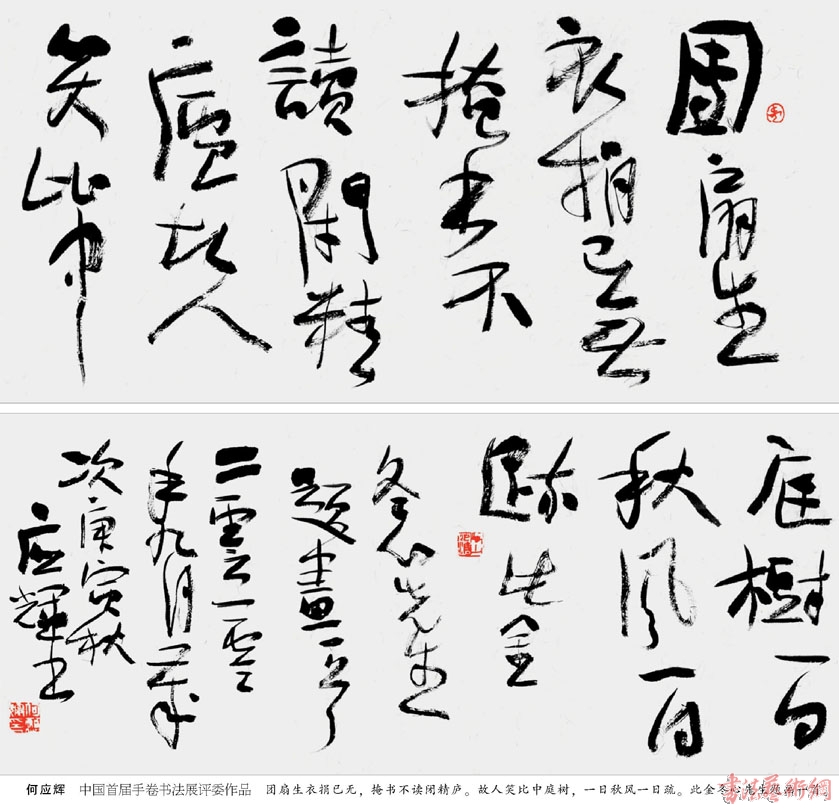 團扇生
衣捐已無
掩書不
讀閑精
廬故人
笑比中
庭樹一日
秋風一日
疏此金
冬心先生
題畫一首
二零一零
年九月歲
次庚寅秋
應輝書
何应辉 中国首届手卷书法展评委作品 团扇生衣捐已无，掩书不读闲精庐。故人笑比中庭树，一日秋风一日疏。此金冬心先生题画一首。
書法藝術網